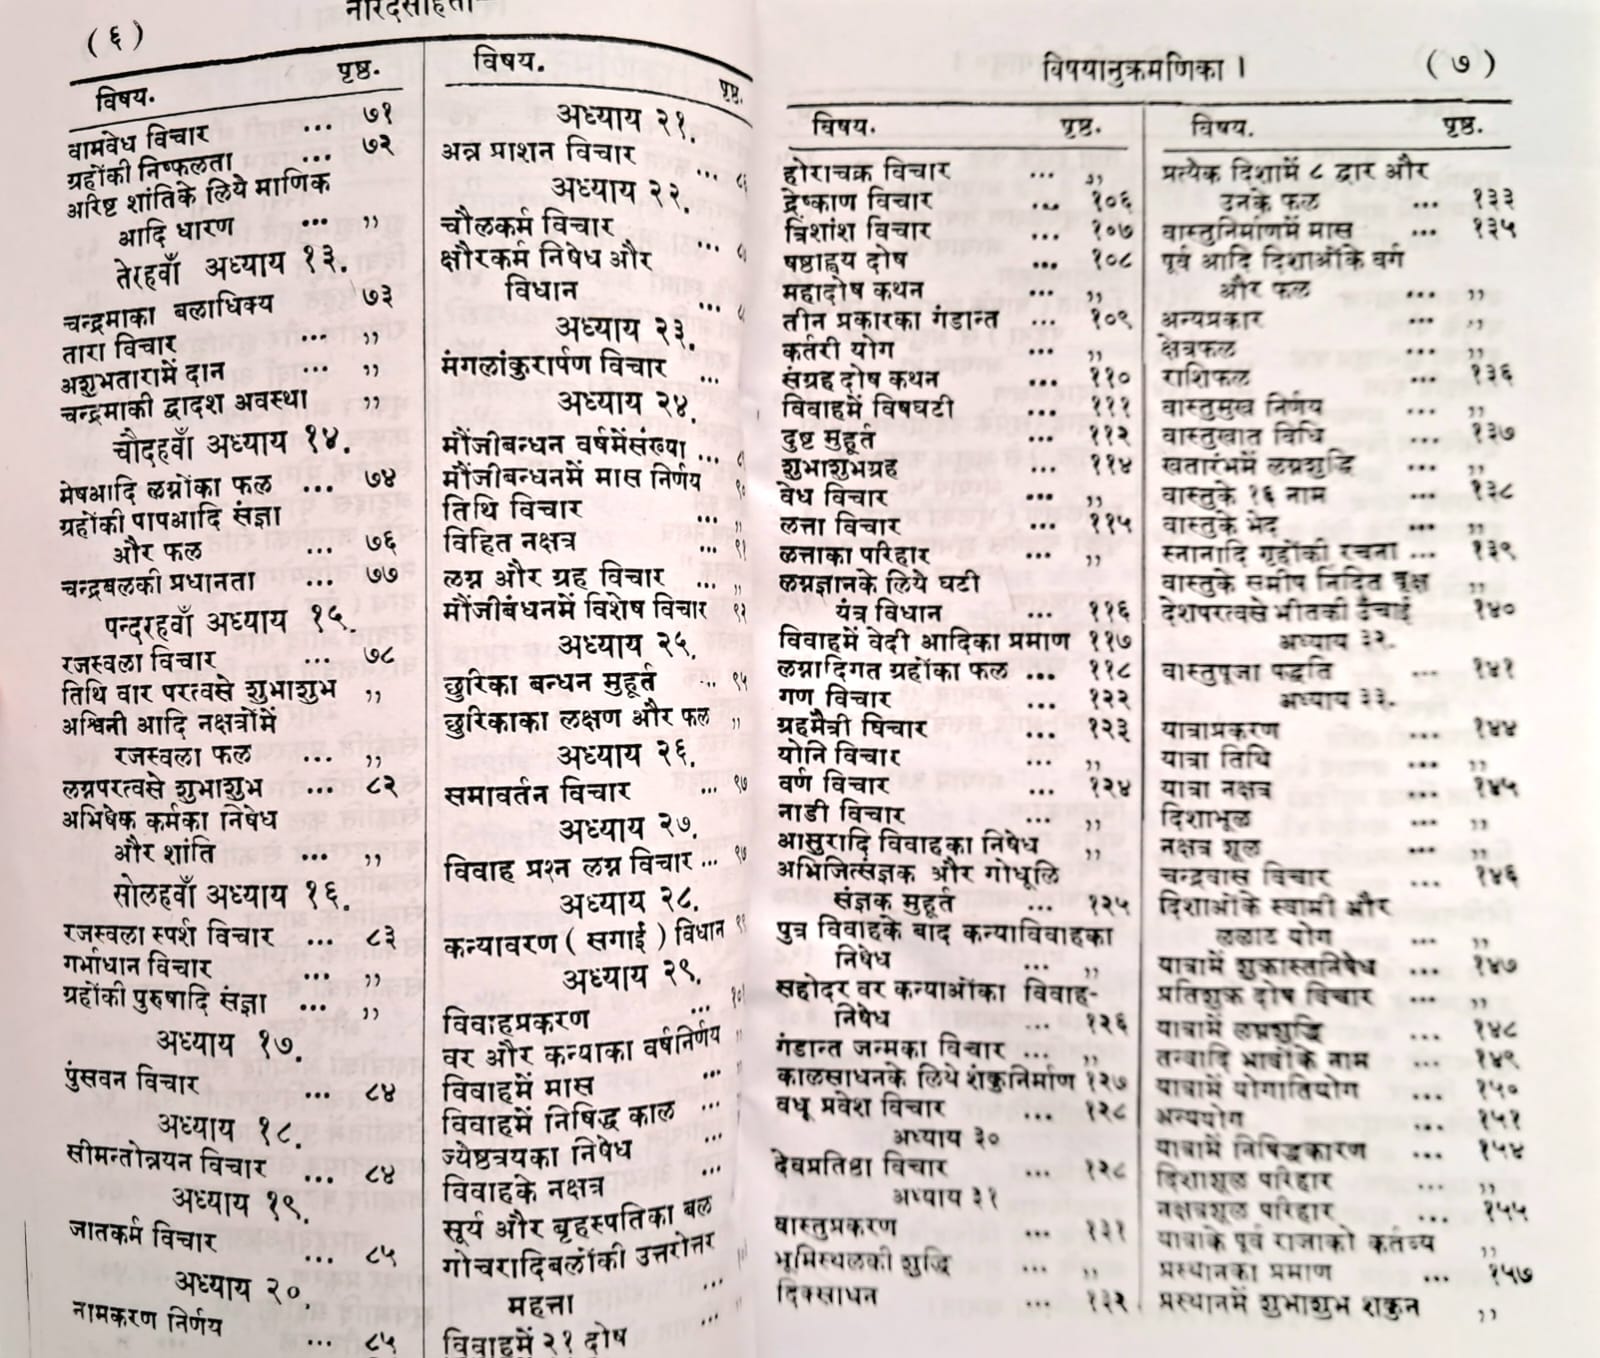 ( ६ )
नारदसंहिता
विषय. पृष्ठ.
वामवेध विचार ... ७१
ग्रहोंकी निष्फलता ... ७२
अरिष्ट शांतिके लिये माणिक
आदि धारण ... ,,
तेरहवाँ अध्याय १३.
चन्द्रमाका बलाधिक्य ७३
तारा विचार ... ,,
अशुभतारामें दान ... ,,
चन्द्रमाकी द्वादश अवस्था ,,
चौदहवाँ अध्याय १४.
मेषआदि लग्नोंका फल ... ७४
ग्रहोंकी पापआदि संज्ञा
और फल ... ७६
चन्द्रबलकी प्रधानता ... ७७
पन्दरहवाँ अध्याय १५.
रजस्वला विचार ... ७८
तिथि वार परत्वसे शुभाशुभ ,,
अश्विनी आदि नक्षत्रोंमें
रजस्वला फल ... ,,
लग्नपरत्वसे शुभाशुभ ... ८२
अभिषेक कर्मका निषेध
और शांति ... ,,
सोलहवाँ अध्याय १६.
रजस्वला स्पर्श विचार ... ८३
गर्भाधान विचार ... ,,
ग्रहोंकी पुरुषादि संज्ञा ... ,,
अध्याय १७.
पुंसवन विचार ... ८४
अध्याय १८.
सीमन्तोन्नयन विचार ... ८४
अध्याय १९.
जातकर्म विचार ... ८५
अध्याय २०.
नामकरण निर्णय ... ८५
विषय. पृष्ठ.
अध्याय २१.
अन्न प्राशन विचार ...
अध्याय २२.
चौलकर्म विचार ...
क्षौरकर्म निषेध और
विधान ...
अध्याय २३.
मंगलांकुरार्पण विचार ...
अध्याय २४.
मौंजीबन्धन वर्षमेंसख्या ...
मौंजीबन्धनमें मास निर्णय ९०
तिथि विचार ... ,,
विहित नक्षत्र ... ९१
लग्न और ग्रह विचार ... ,,
मौंजीबंधनमें विशेष विचार ९२
अध्याय २५.
छुरिका बन्धन मुहूर्त ... ९५
छुरिकाका लक्षण और फल ,,
अध्याय २६.
समावर्तन विचार ... ९७
अध्याय २७.
विवाह प्रश्न लग्न विचार ... ९७
अध्याय २८.
कन्यावरण ( सगाई ) विधान ९९
अध्याय २९.
विवाहप्रकरण ...
वर और कन्याका वर्षनिर्णय
विवाहमें मास ...
विवाहमें निषिद्ध काल ...
ज्येष्ठत्रयका निषेध ...
विवाहके नक्षत्र ...
सूर्य और बृहस्पतिका बल
गोचरादिबलोंकी उत्तरोत्तर
महत्ता ...
विवाहमें २१ दोष ...
विषयानुक्रमणिका । ( ७ )
विषय. पृष्ठ.
होराचक्र विचार ... ,,
द्रेष्काण विचार ... १०६
त्रिंशांश विचार ... १०७
षष्ठाह्वय दोष ... १०८
महादोष कथन ... ,,
तीन प्रकारका गंडान्त ... १०९
कर्तरी योग ... ,,
संग्रह दोष कथन ... ११०
विवाहमें विषघटी ... १११
दुष्ट मुहूर्त ... ११२
शुभाशुभग्रह ... ११४
वेध विचार ... ,,
लत्ता विचार ... ११५
लत्ताका परिहार ... ,,
लग्नज्ञानके लिये घटी
यंत्र विधान ... ११६
विवाहमें वेदी आदिका प्रमाण ११७
लग्नादिगत ग्रहोंका फल ... ११८
गण विचार ... १२२
ग्रहमैत्री विचार ... १२३
योनि विचार ... ,,
वर्ण विचार ... १२४
नाडी विचार ... ,,
आसुरादि विवाहका निषेध ,,
अभिजित्संज्ञक और गोधूलि
संज्ञक मुहूर्त ... १२५
पुत्र विवाहके बाद कन्याविवाहका
निषेध ... ,,
सहोदर वर कन्याओंका विवाह-
निषेध ... १२६
गंडान्त जन्मका विचार ... ,,
कालसाधनके लिये शंकुनिर्माण १२७
वधू प्रवेश विचार ... १२८
अध्याय ३०
देवप्रतिष्ठा विचार ... १२८
अध्याय ३१
वास्तुप्रकरण ... १३१
भूमिस्थलकी शुद्धि ... ,,
दिक्साधन ... १३२
विषय. पृष्ठ.
प्रत्येक दिशामें ८ द्वार और
उनके फल ... १३३
वास्तुनिर्माणमें मास ... १३५
पूर्व आदि दिशाओंके वर्ग
और फल ... ,,
अन्यप्रकार ... ,,
क्षेत्रफल ... ,,
राशिफल ... १३६
वास्तुमुख निर्णय ... ,,
वास्तुखात विधि ... १३७
खतारंभमें लग्नशुद्धि ... ,,
वास्तुके १६ नाम ... १३८
वास्तुके भेद ... ,,
स्नानादि गृहोंकी रचना ... १३९
वास्तुके समीप निंदित वृक्ष ,,
देशपरत्वसे भीतकी उंचाई १४०
अध्याय ३२.
वास्तुपूजा पद्धति ... १४१
अध्याय ३३.
यात्राप्रकरण ... १४४
यात्रा तिथि ... ,,
यात्रा नक्षत्र ... १४५
दिशाभूल ... ,,
नक्षत्र शूल ... ,,
चन्द्रवास विचार ... १४६
दिशाओंके स्वामी और
ललाट योग ... ,,
यात्रामें शुक्रास्तनिषेध ... १४७
प्रतिशुक्र दोष विचार ... ,,
यात्रामें लग्नशुद्धि ... १४८
तन्वादि भावोंके नाम ... १४९
यात्रामें योगातियोग ... १५०
अन्ययोग ... १५१
यात्रामें निषिद्धकारण ... १५४
दिशाशूल परिहार ... ,,
नक्षत्रशूल परिहार ... १५५
यात्राके पूर्व राजाको कर्तव्य ,,
प्रस्थानका प्रमाण ... १५७
प्रस्थानमें शुभाशुभ शकुन ,,